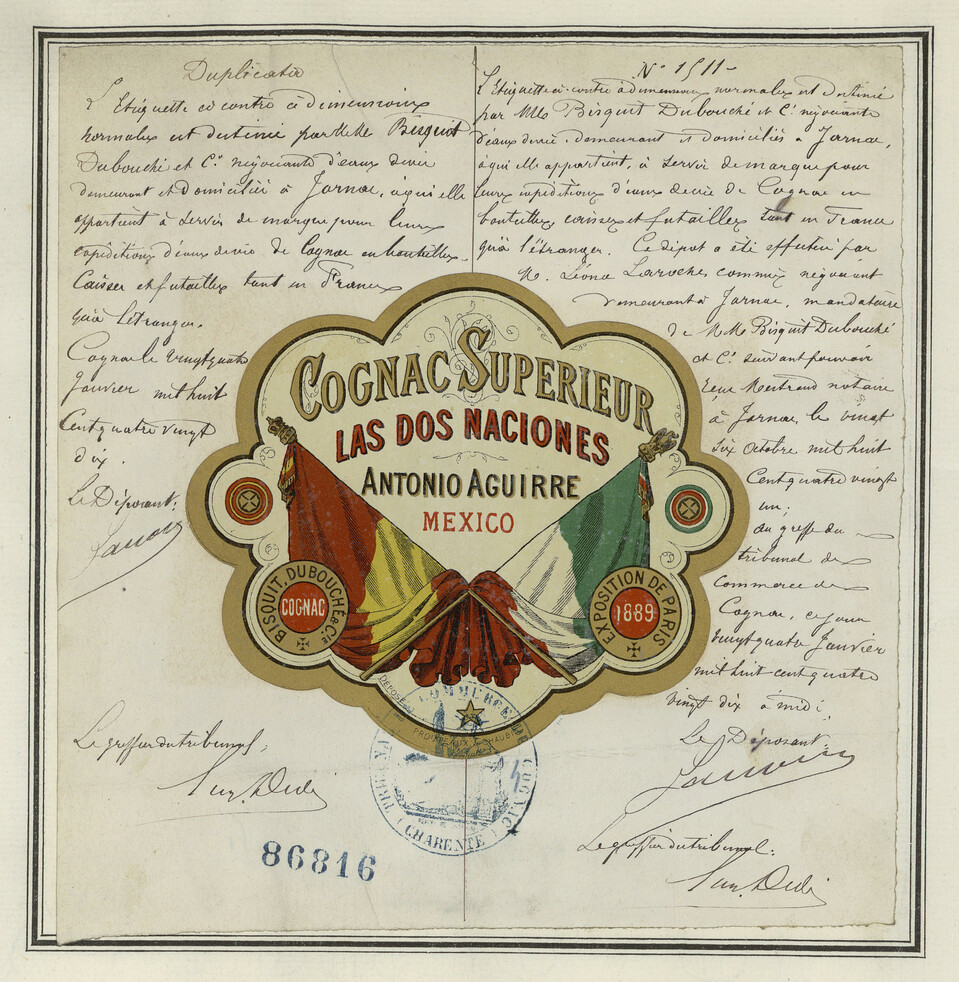 Duplicata
L'Etiquette ci contre à dimensions
normales est destinée par MM. Bisquit
Dubouché et Cie. négociants d'eaux de vie
demeurant et domiciliés à Jarnac, à qui elle
appartient à servir de marque pour leurs
expéditions d'eaux de vie de Cognac en bouteilles.
Caisses et futailles tant en France
qu'à l'étranger.
Cognac le vingt quatre
Janvier mil huit
Cent quatre vingt
dix.
Le Déposant:
Le greffier du tribunal,
N° 1511-
L'Etiquette ci-contre à dimensions normales est destinée
par MM. Bisquit Dubouché et Cie négociants
d'eaux de vie, demeurant et domiciliés à Jarnac,
à qui elle appartient, à servir de marque pour
leurs expéditions d'eaux de vie de Cognac en
bouteilles, caisses et futailles tant en France
qu'à l'étranger. Ce dépôt a été effectué par
M. Léonce Laroche, commis négociant
demeurant à Jarnac, mandataire
de MM Bisquit Dubouché
et Cie. suivant pouvoir
notaire
à Jarnac le vingt
six Octobre mil huit
Cent quatre vingt
un;
au greffe du
tribunal de
Commerce de
Cognac, ce jour
vingt quatre Janvier
mil huit cent quatre
vingt dix à midi.
Le Déposant:
Le greffier du tribunal:
COGNAC SUPERIEUR
LAS DOS NACIONES
ANTONIO AGUIRRE
MEXICO
BISQUIT, DUBOUCHÉ & CIE
COGNAC
EXPOSITION DE PARIS
1889
DÉPOSÉ
TRIBUNAL DE COMMERCE DE COGNAC
(CHARENTE)
86816